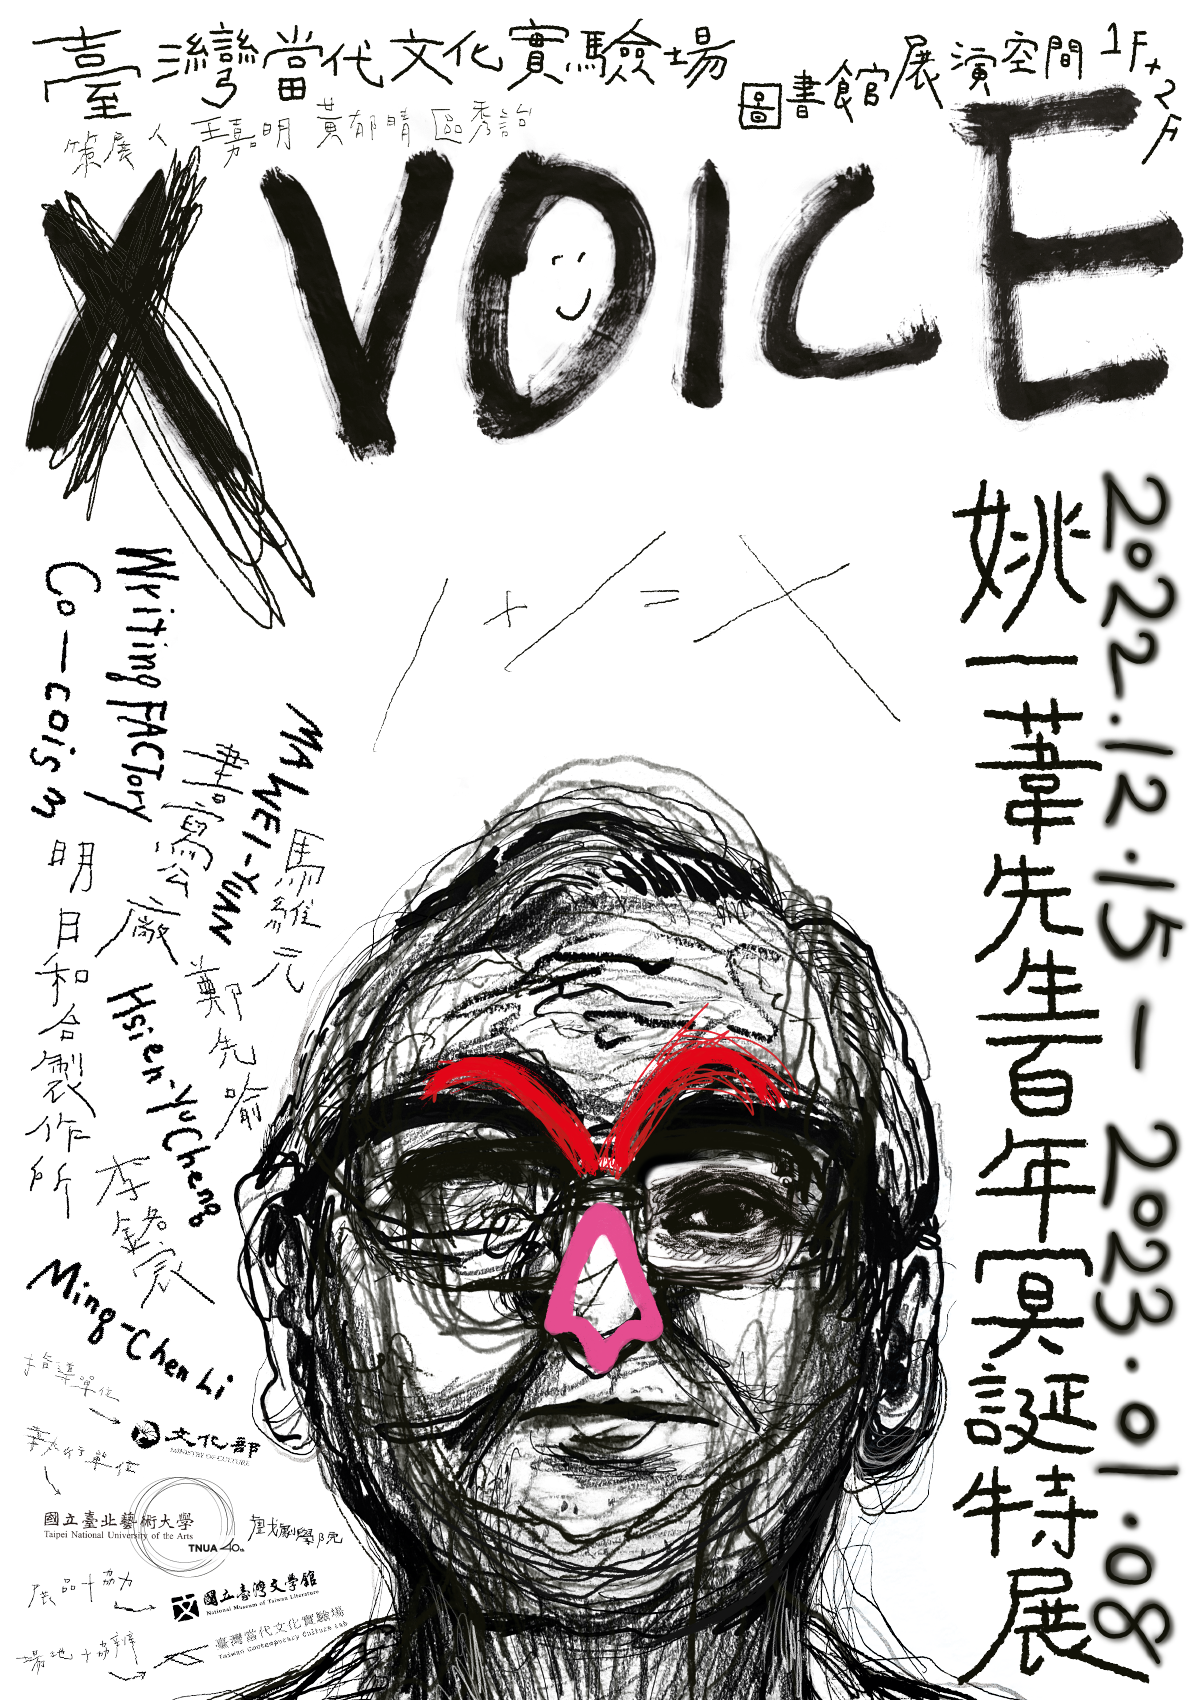 臺灣當代文化實驗場
圖書館展演空間 1F+2F
策展人 王嘉明 黃郁晴 區秀詒
X VOICE
/ + / = X
2022.12.15 — 2023.01.08
姚一葦先生百年冥誕特展
MA WEI-YUAN
馬維元
Writing FACTory
書寫公廠
Co-coism
明日和合製作所
Hsien-Yu Cheng
鄭先喻
李銘宸
Ming-Chen Li
指導單位
文化部
MINISTRY OF CULTURE
國立臺北藝術大學
Taipei National University of the Arts
TNUA 40th
戲劇學院
展品+協力
國立臺灣文學館
National Museum of Taiwan Literature
場地+協辦
臺灣當代文化實驗場
Taiwan Contemporary Culture Lab